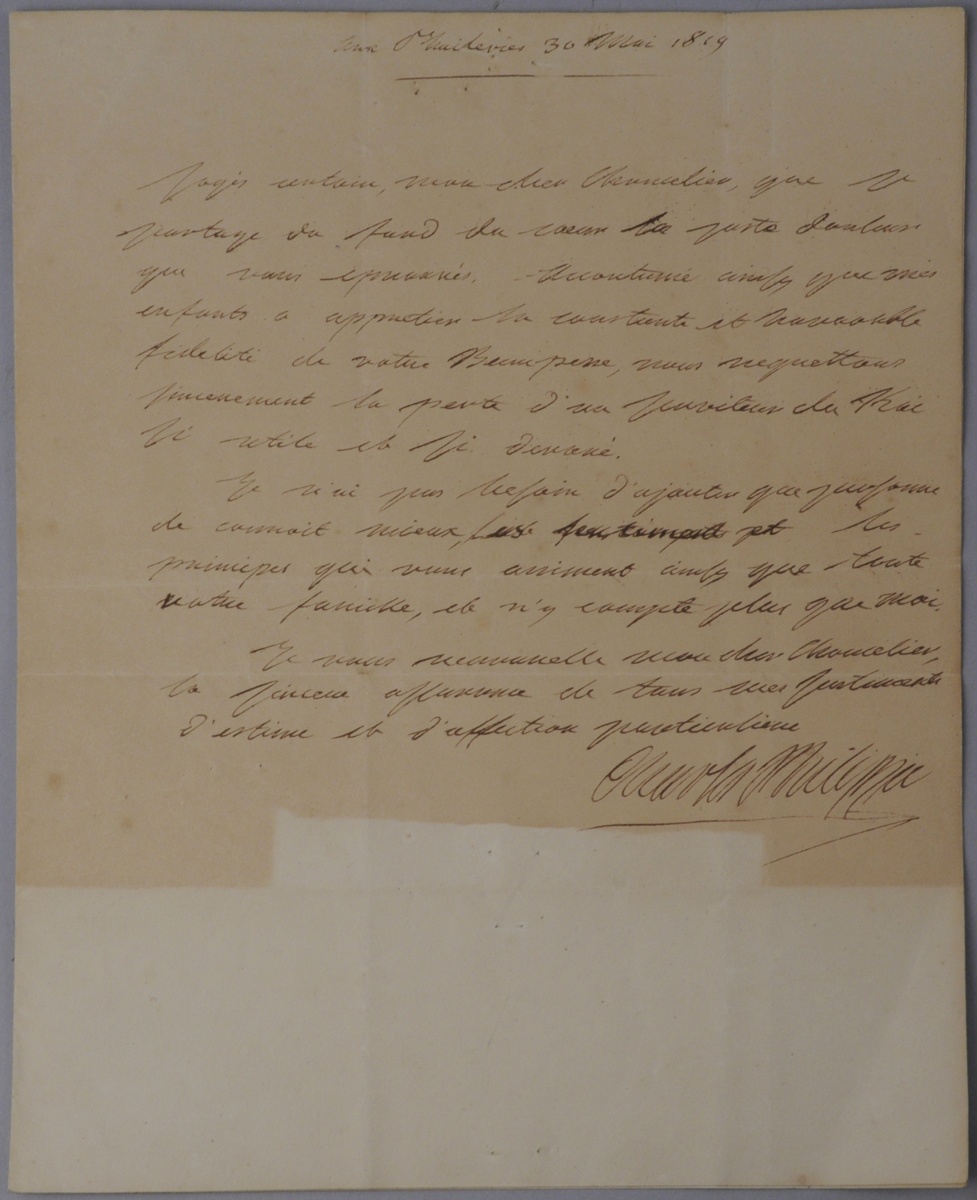 aux Thuileries 30 Mai 1819
Soyés certain, mon cher Chancelier, que je
partage du fond du coeur la juste douleur
que vous eprouvés. Accoutumé ainsy que mes
enfants a apprecier la constante et honorable
fidelité de votre Beaupere, nous regrettons
sincerement la perte d'un serviteur du Roi
si utile et si devoué.
Je n'ai pas besoin d'ajouter que personne
ne connoit mieux les sentiments et les
principes qui vous animent ainsy que toute
votre famille, et n'y compte plus que moi.
Je vous renouvelle mon cher Chancelier,
la sincere assurance de tous mes sentiments
d'estime et d'affection particuliere
Charles Philippe